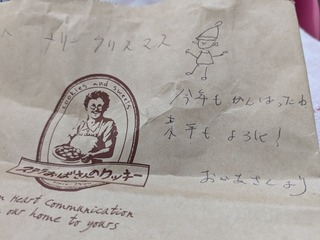 メリー クリスマス
今年もがんばったね
来年もよろしく!
より
cookies and sweets
ステラおばさんのクッキー
Heart Communication
our home to yours